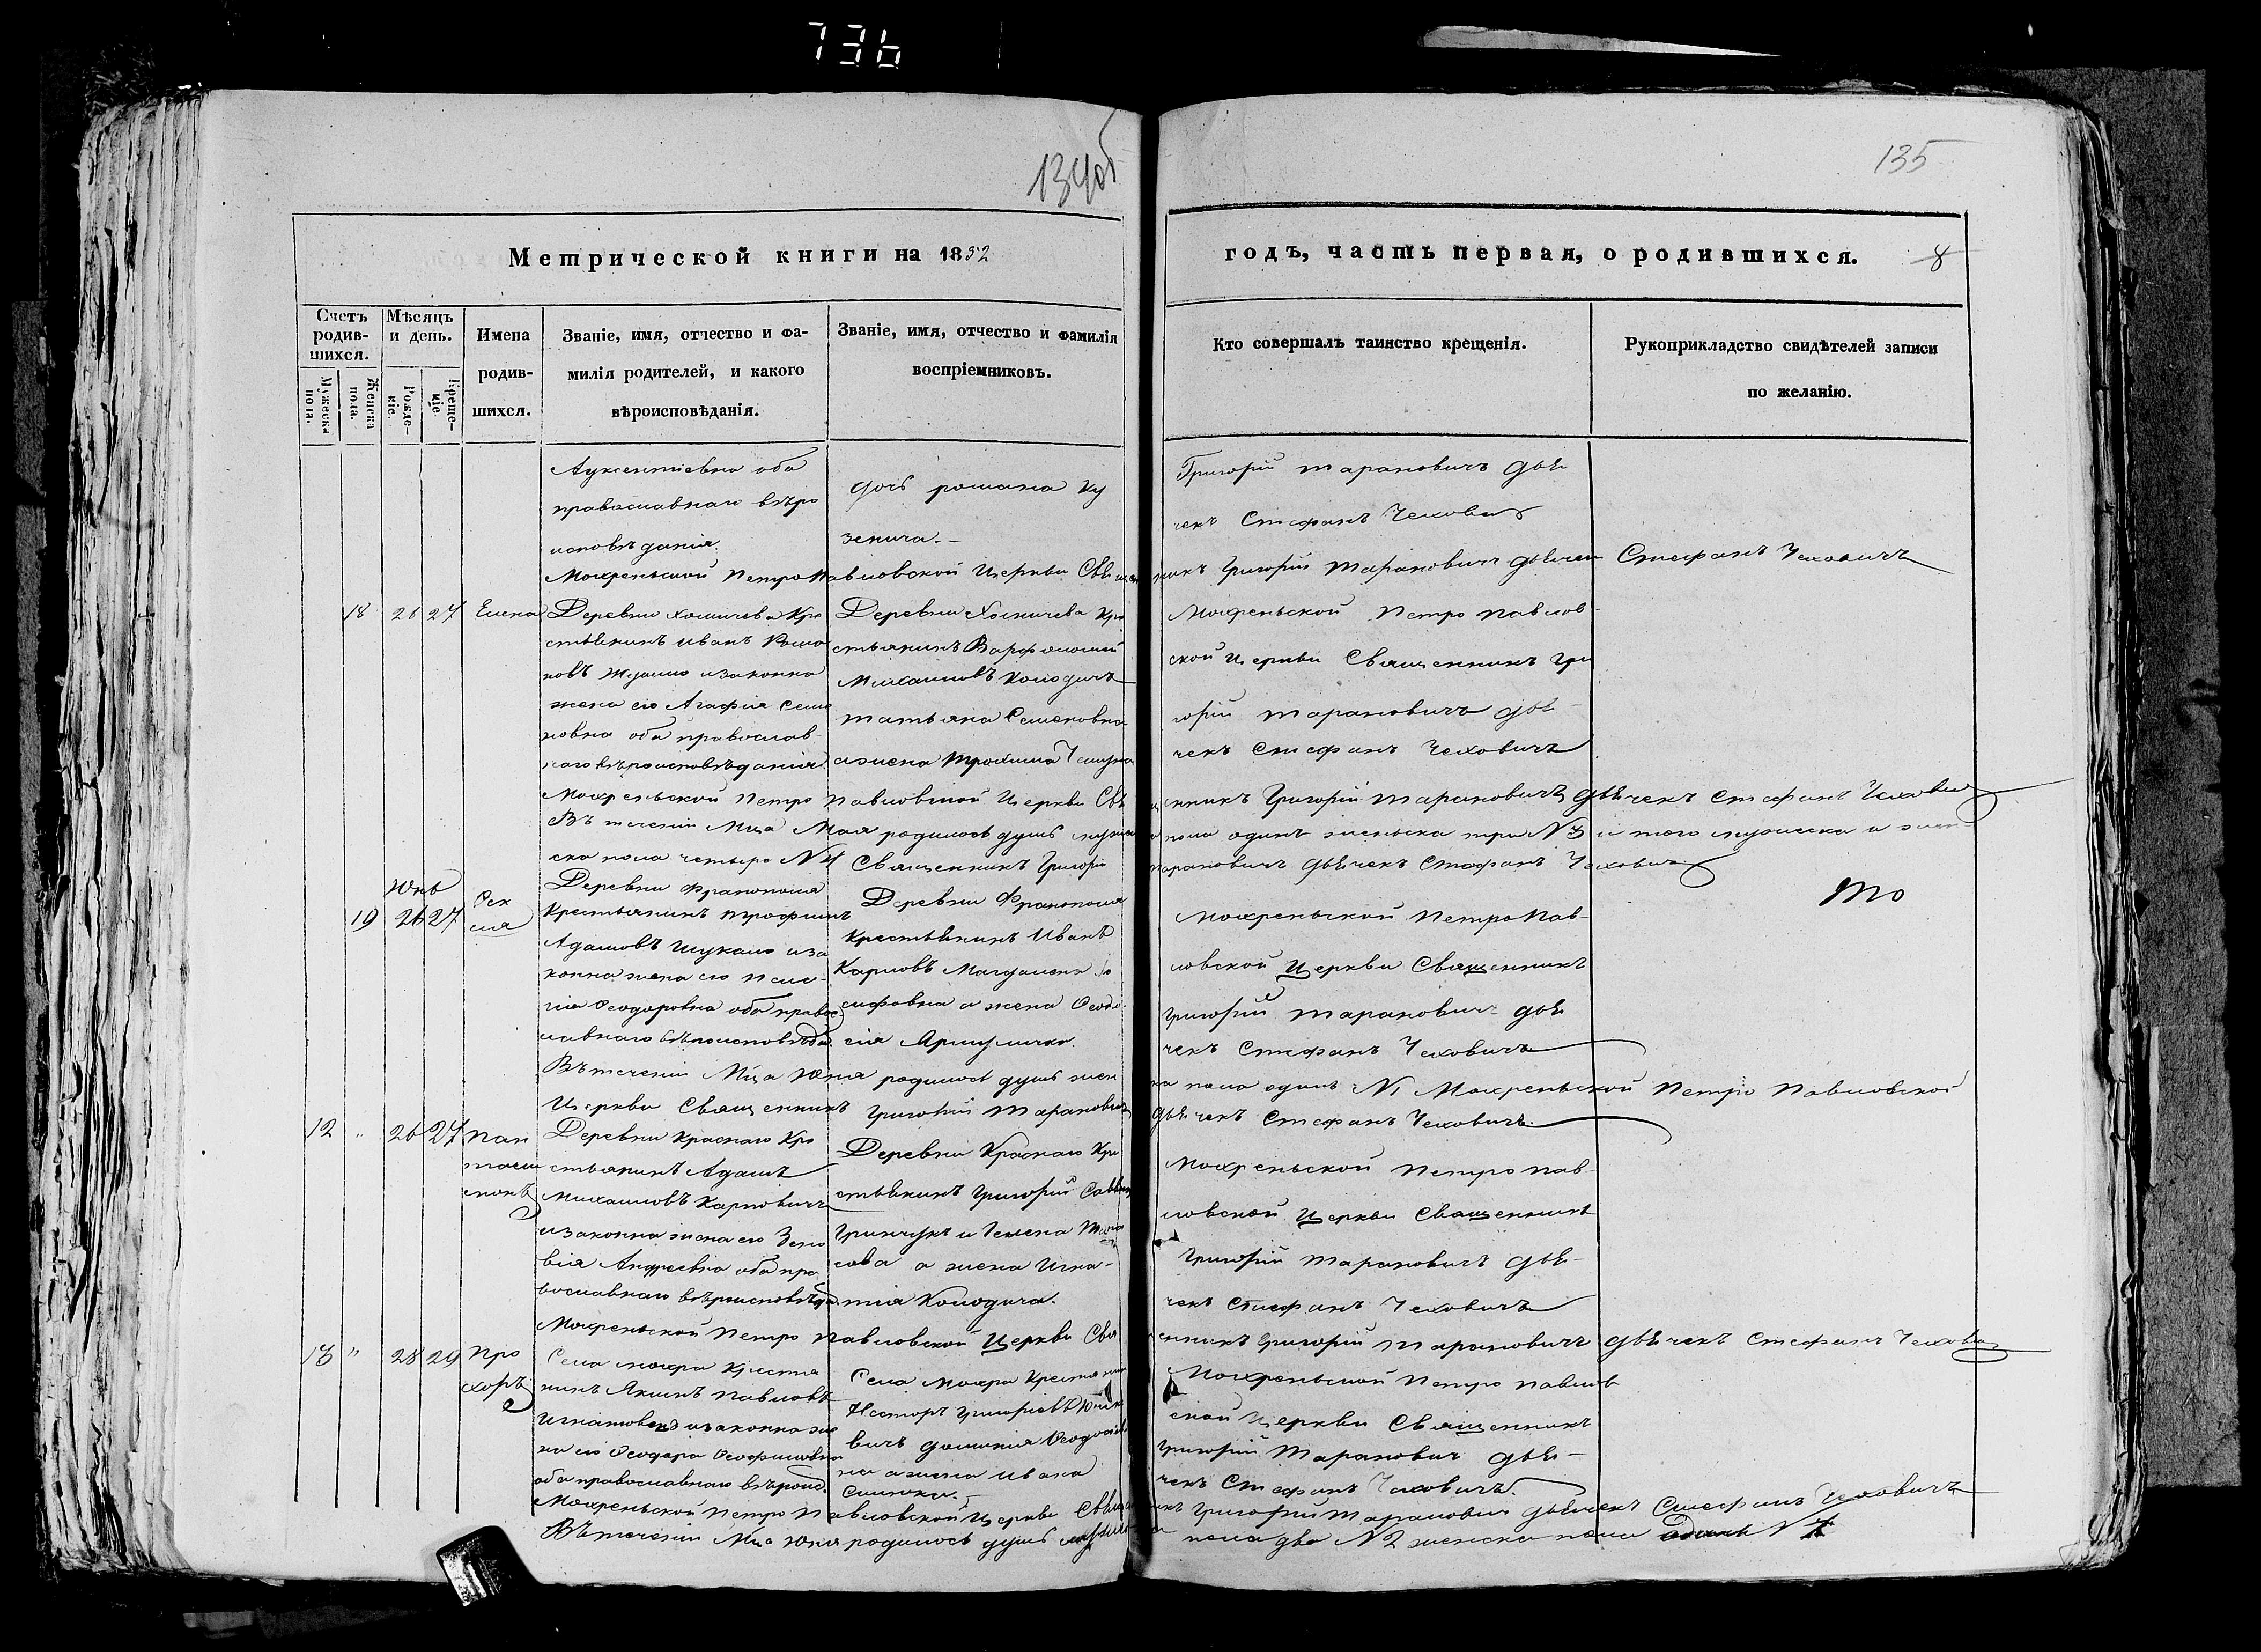 736
134об
135
Метрической книги на 1852
годъ, часть первая, о родившихся.
8
Счетъ родив-шихся.
Мужеска пола.
Женска пола.
Мѣсяцъ и день.
Рожде-ніе.
Креще-ніе.
Имена
родив-
шихся.
Званіе, имя, отчество и фа-
милія родителей, и какого
вѣроисповѣданія.
Званіе, имя, отчество и фамилія
воспріемниковъ.
Кто совершалъ таинство крещенія.
Рукоприкладство свидѣтелей записи
по желанію.
Авксентіевна оба
православнаго вѣро
исповѣданія.
дочь романа Ку
зенича.
Григорій Тарановичъ дьѣ
чекъ Стефанъ Чеховичъ
Мохреньской Петропавловской Церкви Свѣщен
никъ Григорій Тарановичъ дьѣчекъ Стефанъ Чеховичъ
18 26 27 Елена
Деревни Хомичева Кре
стьѣнинъ Иванъ Рома
новъ изаконна
жена его Агафія Семе
новна оба православ
наго вѣроисповѣданія
Деревни Хомичева Кре
стьянинъ Варфоломей
Михаиловъ Колодичъ
татьяна Семеновна
а жена Трохима
Мохреньской Петро павлов
ской Церкви Священникъ Гри
горій Тарановичъ дьѣ
чекъ Стефанъ Чеховичъ
Мохреньской Петро Павловской Церкви Свѣ
щенникъ Григорій Тарановичъ дьѣчекъ Стефанъ Чеховичъ
Въ теченіи Мца Мая родилось душъ мужеска
пола одинъ женьска три №3 и того мужеска и жен
ска пола четыре №4 Священникъ Григорій
Тарановичъ дьѣчекъ Стефанъ Чеховичъ
то
Юнь
19 26 27 Фек
ля
Деревни Франополя
Крестьянинъ Трофимъ
Адамовъ Шукало иза
конна жена его Пела
гія Феодоровна оба правос
лавнаго вѣроисповѣда
Деревни Франополя
Крестьѣнинъ Иванъ
Карповъ Магдалена Ио
сифовна а жена Феодо
сія
Мохреньской Петро Пав
ловской Церкви Священникъ
Григорій Тарановичъ дьѣ
чекъ Стефанъ Чеховичъ
Въ теченіи Мца Юня родилось душъ жен
ка пола одинъ №1 Мохреньской Петро Павловской
Церкви Священникъ Григорій Тарановичъ
дьѣчекъ Стефанъ Чеховичъ
12 " 26 27 Пан
телеи
монъ
Деревни Краснаго Кре
стьянинъ Адамъ
Михаиловъ Карповичъ
изаконна жена его Зено
вія Андреевна оба пра
вославнаго вѣроисповѣда
Деревни Краснаго Кре
стьѣнинъ Григорій
Гринчукъ и
а жена Игна-
тія Колодича.
Мохреньской Петро пав
ловской Церкви Священникъ
Григорій Тарановичъ дьѣ-
чекъ Стефанъ Чеховичъ
Мохреньской Петро Павловской Церкви Свя
щенникъ Григорій Тарановичъ дьѣчекъ Стефанъ Чеховичъ
13 " 28 29 Про
хоръ
Села Мохра Крестья
нинъ Якимъ Павловъ
Игнатовецъ изаконна же
на его Феодора Феофиловна
оба православнаго вѣроис.
Села Мохра Крестьянин
Несторъ Григоріевъ
вичъ Домникія
на а жена Ивана
Мохреньской Петро павлов
ской Церкви Священникъ
Григорій Тарановичъ дьѣ-
чекъ Стефанъ Чеховичъ.
Мохреньской Петро Павловской Церкви Свѣщен
никъ Григорій Тарановичъ дьѣчекъ Стефанъ Чеховичъ
Въ теченіи Мца Юня родилось душъ мужеска
пола два №2 женска пола одинъ №1